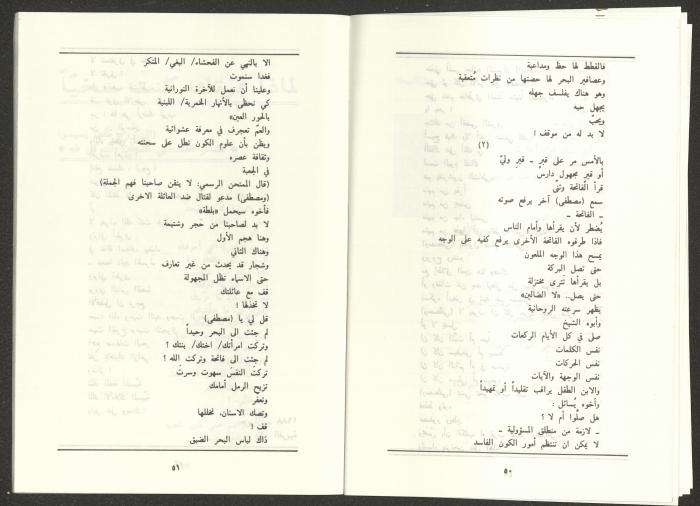 فالقطط لها حظ ومداعبة
وعصافير البحر لها حصتها من نظرات مُتعقبة
وهو هناك يفلسف جهله
يجهل حبه
ويحبّ
لا بد له من موقف !
(٢)
بالأمس مر على قبرٍ ـ قبرِ وليّ
أو قبر مجهول دارسْ
قرأ الفاتحة وثنّى
سمع (مصطفى) آخر يرفع صوته
ـ الفاتحة ـ
يُضطر لأن يقرأها وأمام الناس
فاذا طرقوه الفاتحة الأخرى يرفع كفيه على الوجه
يمسح هذا الوجه الملعون
حتى تصل البركة
بل يقرأها تَترى مختزلة
حتى يصل.. «لا الضالين»
يظهر سرعته الروحانية
وأبوه الشيخ
صلى في كل الأيام الركعات
نفس الكلمات
نفس الحركات
نفس الوجهة والآيات
والابن الطفل يراقب تقليداً أو تمهيداً
وأخوه يُسائل :
هل صلّوا أم لا ؟
ـ لازمة من منطلق المسؤولية ـ
لا يمكن ان تنتظم أمور الكون الفاسد
٥٠
الا بالنهي عن الفحشاء/ البغي/ المنكر
فغدا سنموت
وعلينا أن نعمل للآخرة النورانية
كي نحظى بالأنهار الخمرية/ اللبنية
بالحور العين»
والعمّ تعجرف في معرفة عشوائية
ويظن بأن علوم الكون تطل على سحنته
وثقافة عصره
في الجعبة
(قال الممتحن الرسمي: لا يتقن صاحبنا فهم الجملة)
(ومصطفى) مدعو لقتال ضد العائلة الاخرى
فأخوه سيحمل «بلطة»
لا بد لصاحبنا من حجر وشتيمة
وهنا هجم الأول
وهناك الثاني
وشجار قد يحدث من غير تعارف
حتى الاسماء تظل المجهولة
قف مع عائلتك
لا تخذلها !
قل لي يا (مصطفى)
لم جئت الى البحر وحيداً
وتركت امرأتك/ اختك/ بنتك ؟
لم جئت الى فاتحة وتركت الله ؟
تركتَ النفسَ سهوت وسرتَ
تزيح الرمل أمامك
وتعفّر
وتصك الاسنان، تخللها
قف !
ذاك لباس البحر الضيق
٥١